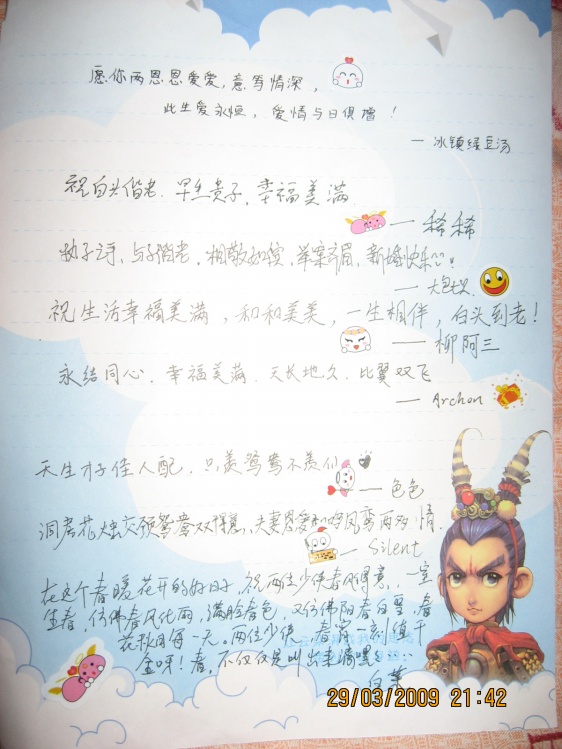 愿你两恩恩爱爱,意笃情深,
此生爱永恒,爱情与日俱增!
一冰镇绿豆汤
祝白头偕老.早生贵子.幸福美满
——稀稀
执子之手、与子偕老.相敬如宾.举案齐眉、新婚快乐。
祝生活幸福美满,和和美美,一生相伴,白头到老!
——柳阿三
永结同心.幸福美满.天长地久.比翼双飞
—— Archon
天生才子佳人配.只羡鸳鸯不羡仙
——色色
洞房花烛交颈鸳鸯双得意.夫妻恩爱和好凤鸾两多情.
—— Silent
在这个春暖花开的好日子,祝两位少侠春风得意,一室
生春,仿佛春风化雨,满脸春色,又仿佛阳春白雪,春
花秋月每一天。两位少侠,春宵一刻值千
金呀!春,不仅仅是叫出来滴嘿
白菜
29/03/2009 21:42